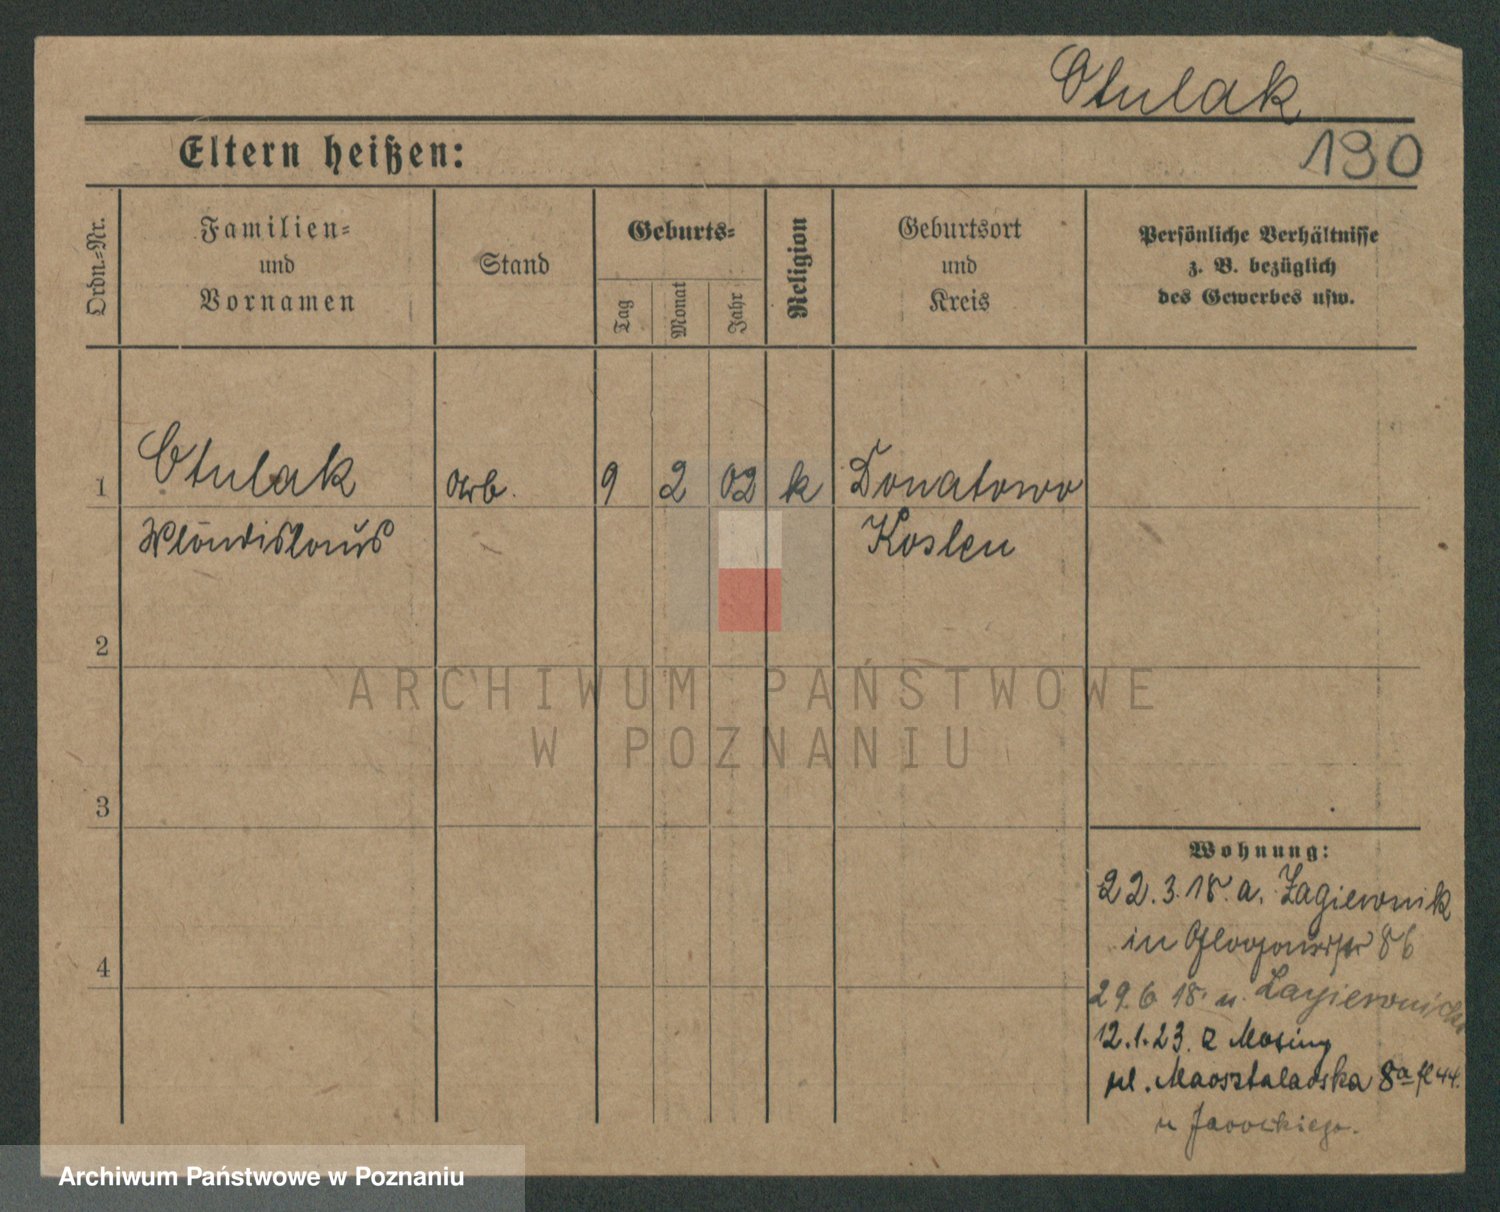 Otulak
Eltern heißen:
190
Ordn.-Nr.
Familien-
und
Vornamen
Stand
Geburts-
Tag
Monat
Jahr
Religion
Geburtsort
und
Kreis
Persönliche Verhältnisse
z. B. bezüglich
des Gewerbes usw.
1 Otulak arb. 9 2 02 k Donatowo
Wladislaus Kosten
2
ARCHIWUM PAŃSTWOWE
W POZNANIU
3
Wohnung:
22.3.18. a. Zagierownik
in Glogauerstr 86
4
29.6 18. n.
12.1.23. z Mosiny
ul. Masztalarska 8a
u Jarockiego.
Archiwum Państwowe w Poznaniu